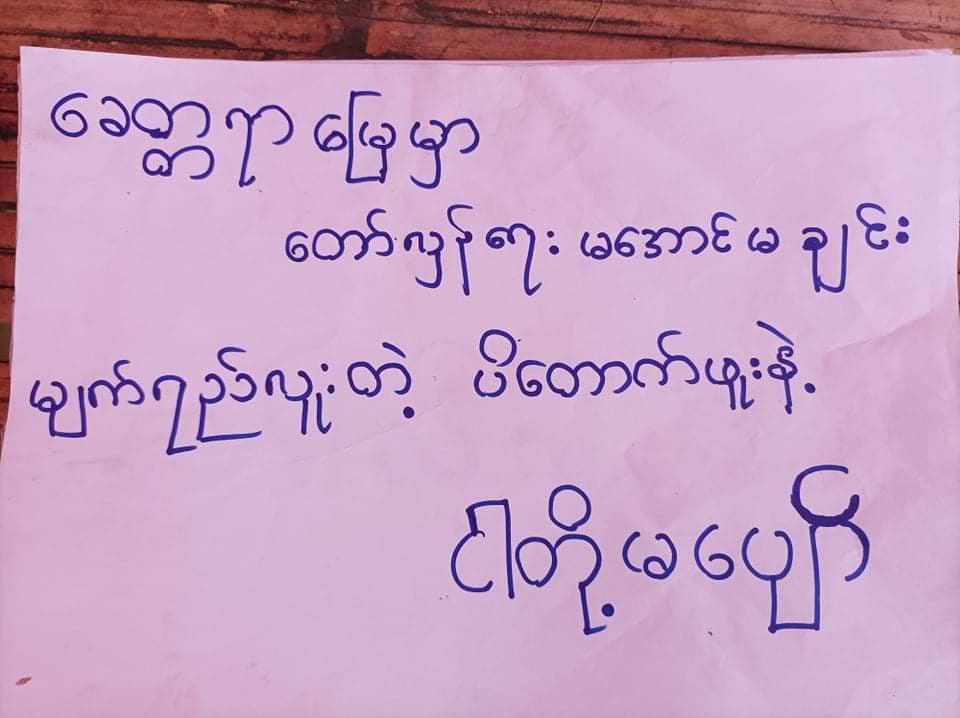 ခေတ္တရာ မြေမှာ
တော်လှန်ရေး မအောင်မ ချင်း
မျက်ရည်လူးတဲ့ ပိတောက်ဖူးနဲ့
ငါတို့ မ ပျော်